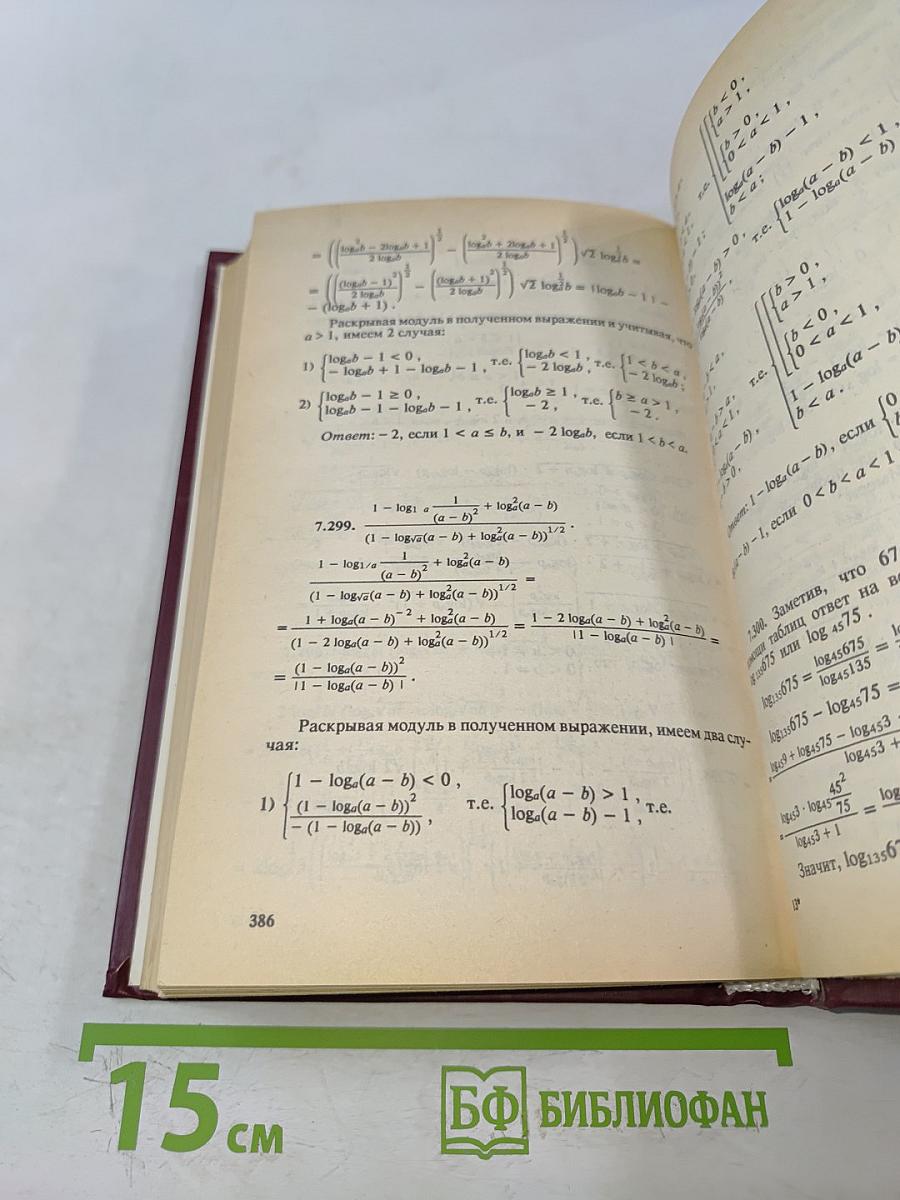 = ((log²ₐb − 2logₐb + 1 / 2 logₐb)^{1/2} − (log²ₐb + 2logₐb + 1 / 2 logₐb)^{1/2}) √2 log^{1/2}ₐb =
= (((logₐb − 1)² / 2 logₐb)^{1/2} − ((logₐb + 1)² / 2 logₐb)^{1/2}) √2 log^{1/2}ₐb = |logₐb − 1| −
− (logₐb + 1) .
Раскрывая модуль в полученном выражении и учитывая, что
a > 1, имеем 2 случая:
1) {logₐb − 1 < 0 , − logₐb + 1 − logₐb − 1 , т.е. {logₐb < 1 , − 2 logₐb , т.е. {1 < b < a , − 2 logₐb ;
2) {logₐb − 1 ≥ 0 , logₐb − 1 − logₐb − 1 , т.е. {logₐb ≥ 1 , − 2 , т.е. {b ≥ a > 1 , − 2 .
Ответ: − 2, если 1 < a ≤ b, и − 2 logₐb, если 1 < b < a.
7.299. (1 − log₁ ₐ 1/(a − b)² + log²ₐ(a − b)) / (1 − log_{√a}(a − b) + log²ₐ(a − b))^{1/2} .
(1 − log_{1/a} 1/(a − b)² + log²ₐ(a − b)) / (1 − log_{√a}(a − b) + log²ₐ(a − b))^{1/2} =
= (1 + logₐ(a − b)^{−2} + log²ₐ(a − b)) / (1 − 2 logₐ(a − b) + log²ₐ(a − b))^{1/2} = (1 − 2 logₐ(a − b) + log²ₐ(a − b)) / |1 − logₐ(a − b)| =
= (1 − logₐ(a − b))² / |1 − logₐ(a − b)| .
Раскрывая модуль в полученном выражении, имеем два слу-
чая:
1) {1 − logₐ(a − b) < 0 , (1 − logₐ(a − b))² / − (1 − logₐ(a − b)) , т.е. {logₐ(a − b) > 1 , logₐ(a − b) − 1 , т.е.
386
т.е. {[{b < 0 , a > 1 , {b > 0 , 0 < a < 1 , logₐ(a − b) − 1 , b < a ;
т.е. {logₐ(a − b) < 1 , 1 − logₐ(a − b)
т.е. {[{b > 0 , a > 1 , {b < 0 , 0 < a < 1 , 1 − logₐ(a − b) b < a .
1 − logₐ(a − b), если {0
− 1, если 0 < b < a < 1
7.300. Заметив, что 67
таблиц ответ на во
675 или log ₄₅75 .
log₁₃₅675 = log₄₅675 / log₄₅135 =
log₁₃₅675 − log₄₅75 =
log₄₅9 + log₄₅75 − log₄₅3 / log₄₅3 +
= log₄₅3 · log₄₅ 45²/75 / log₄₅3 + 1 =
Значит, log₁₃₅67
13*
15 см
БФ БИБЛИОФАН